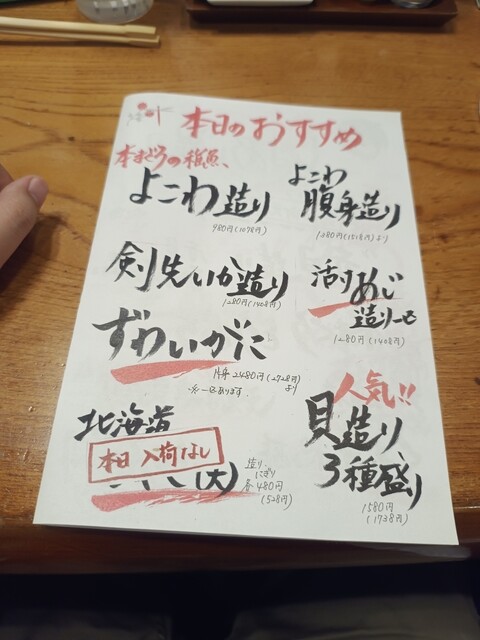 本日のおすすめ
本まぐろの稚魚、
よこわ造り
980円(1078円)
よこわ
腹身造り
1380円(1518円)より
剣先いか造り
1280円(1408円)
活〆あじ
造り一匹
1280円(1408円)
ずわいがに
2480円(2728円)
より
人気!!
貝造り
3種盛り
1580円
(1738円)
北海道
本日 入荷なし
(大)
造り
にぎり
各480円
(528円)